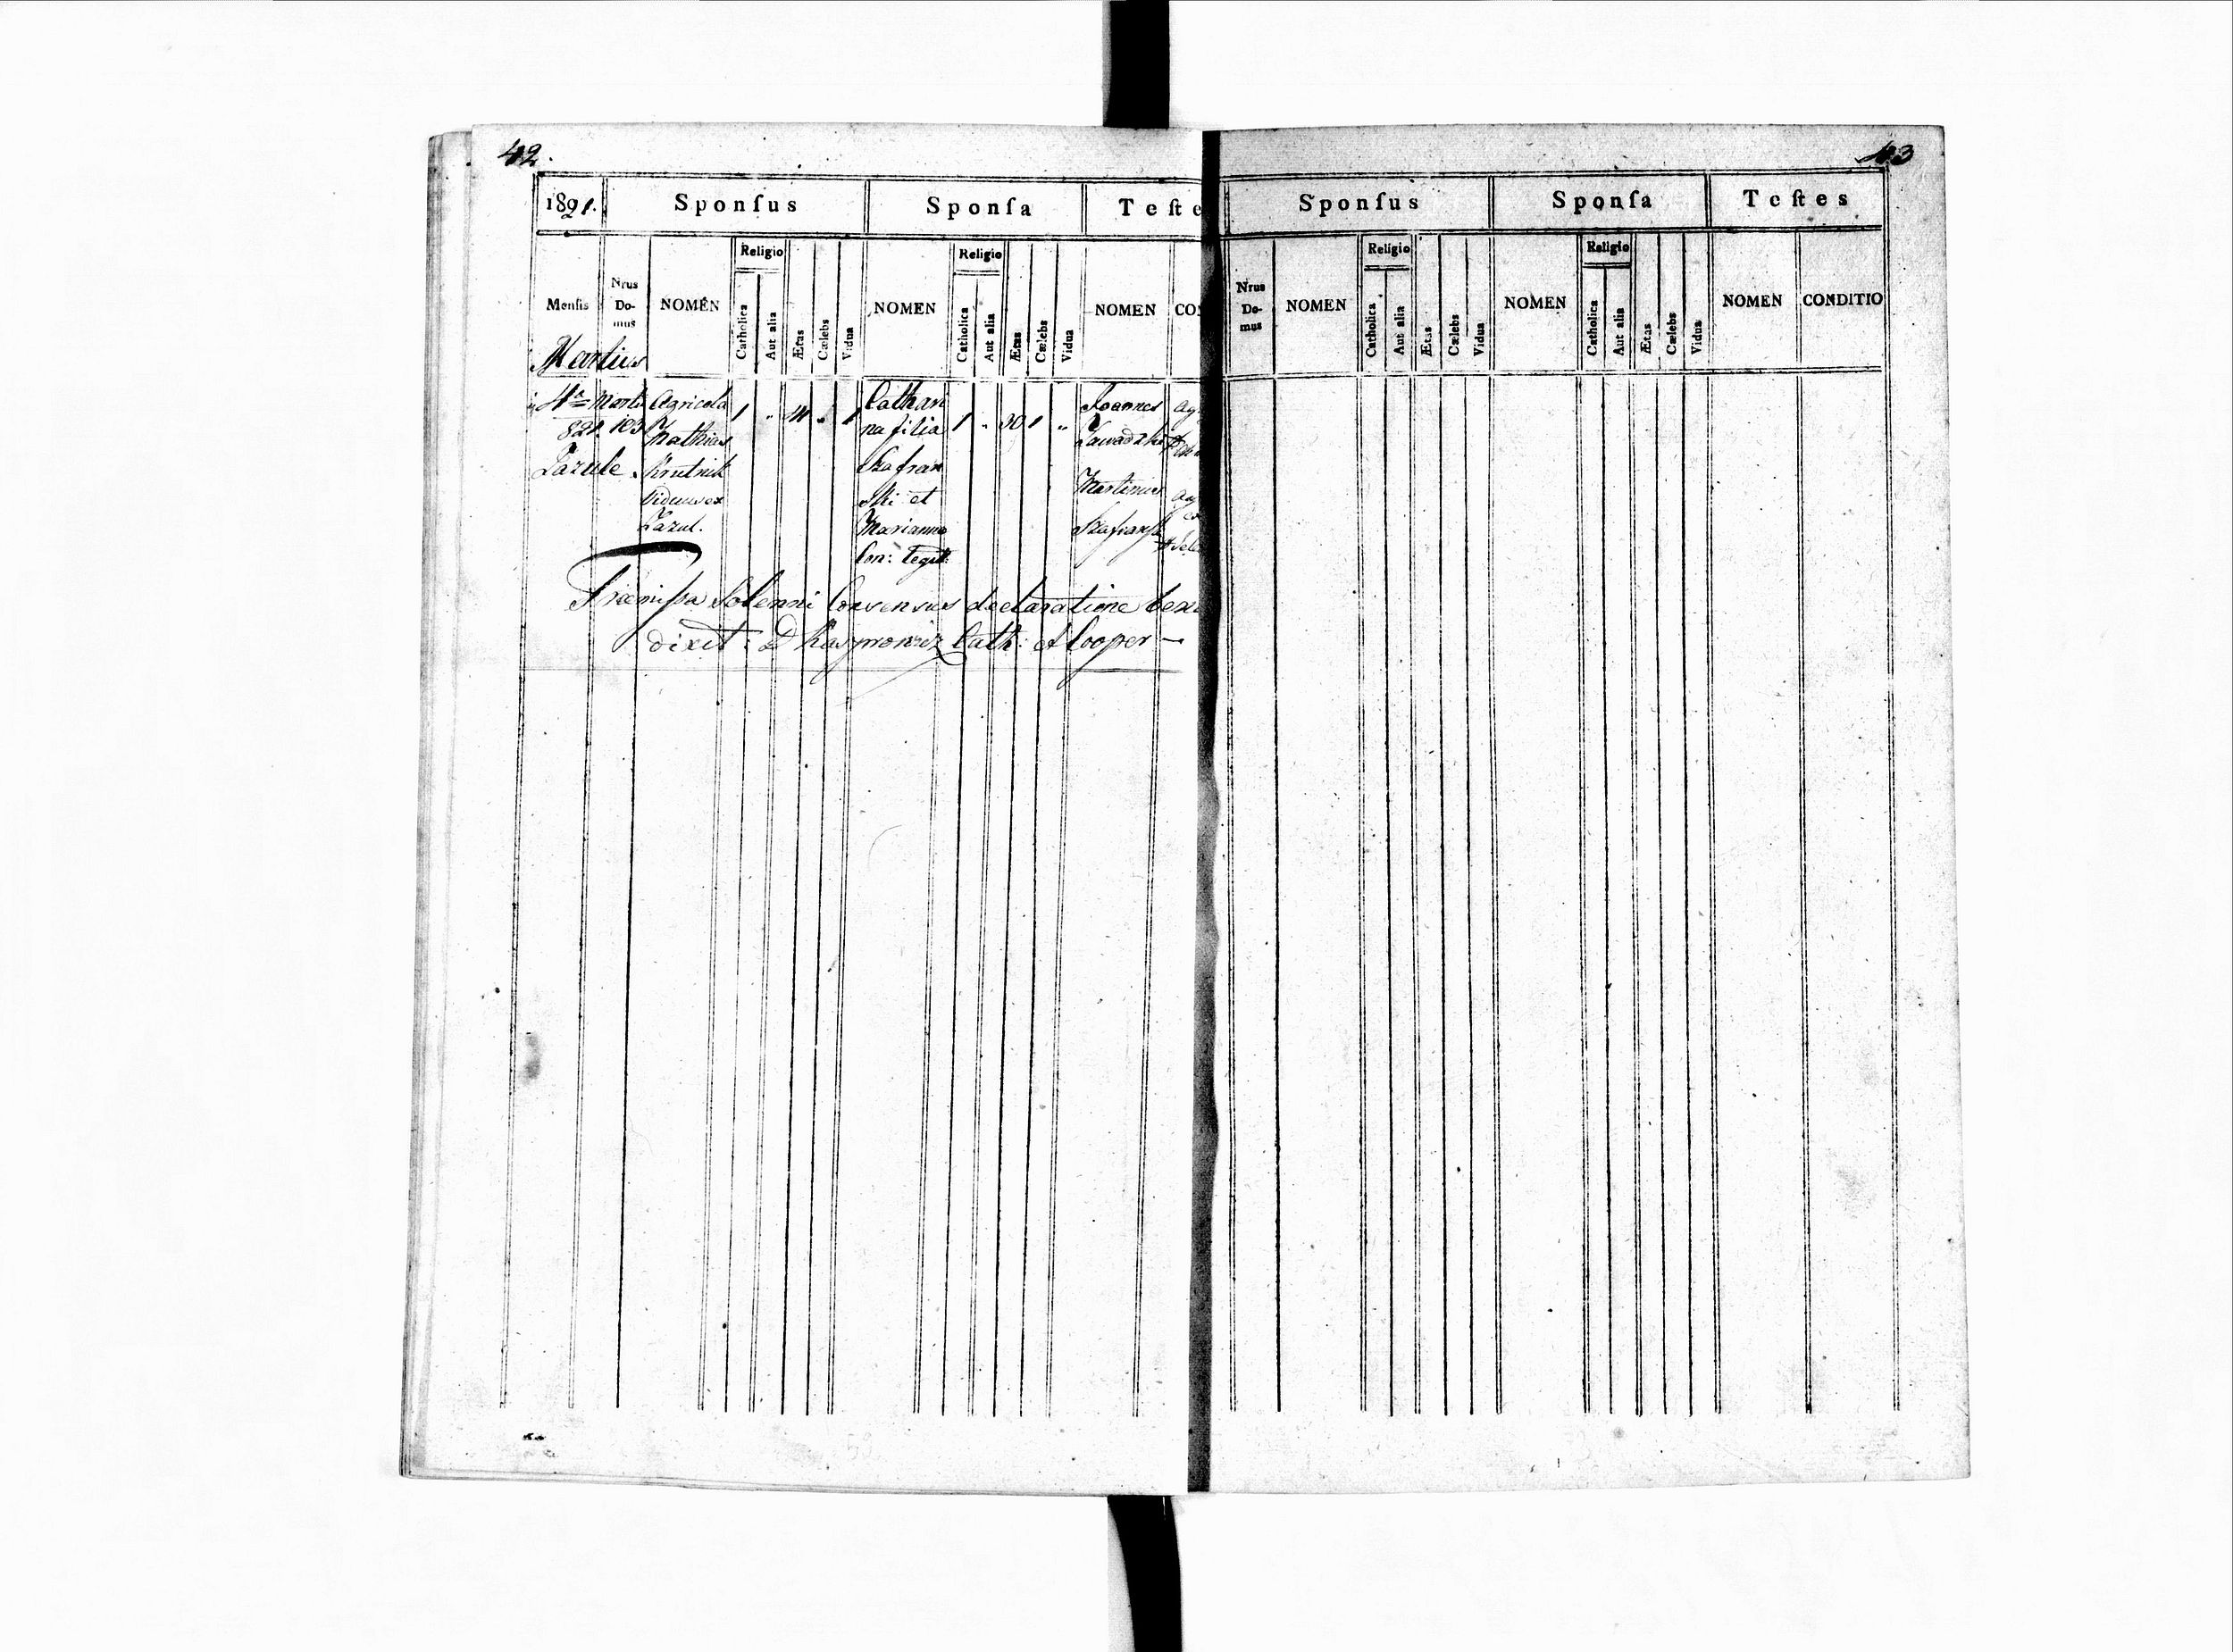 42.
1821.
Sponſus
Sponſa
Teſte
Menſis
Nrus Do- mus
NOMEN
Religio
Catholica
Aut alia
Ætas
Cælebs
Vidua
NOMEN
Religio
Catholica
Aut alia
Ætas
Cælebs
Vidua
NOMEN
CO
Martius
4ta Martii
821. 103
Zazule
Agricola
Mathias
Krutnik
Viduus ex
Zazul.
1 " " 1
Cathari
na filia
Szafran
ski et
Marianna
Con: legit:
1 " 30 1 "
Joannes
Zawadzki
Martinus
Szafransk
Ag
Præmissa Solenni Consensus declaratione
dixit: D Kasprowicz Cath: Cooper —
43
Sponſus
Sponſa
Teſtes
Nrus Do- mus
NOMEN
Religio
Catholica
Aut alia
Ætas
Cælebs
Vidua
NOMEN
Religio
Catholica
Aut alia
Ætas
Cælebs
Vidua
NOMEN
CONDITIO